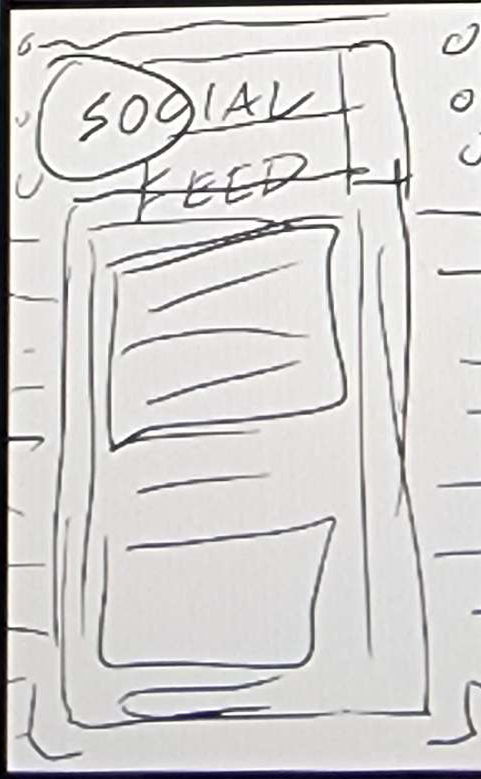 SOCIAL
FEED